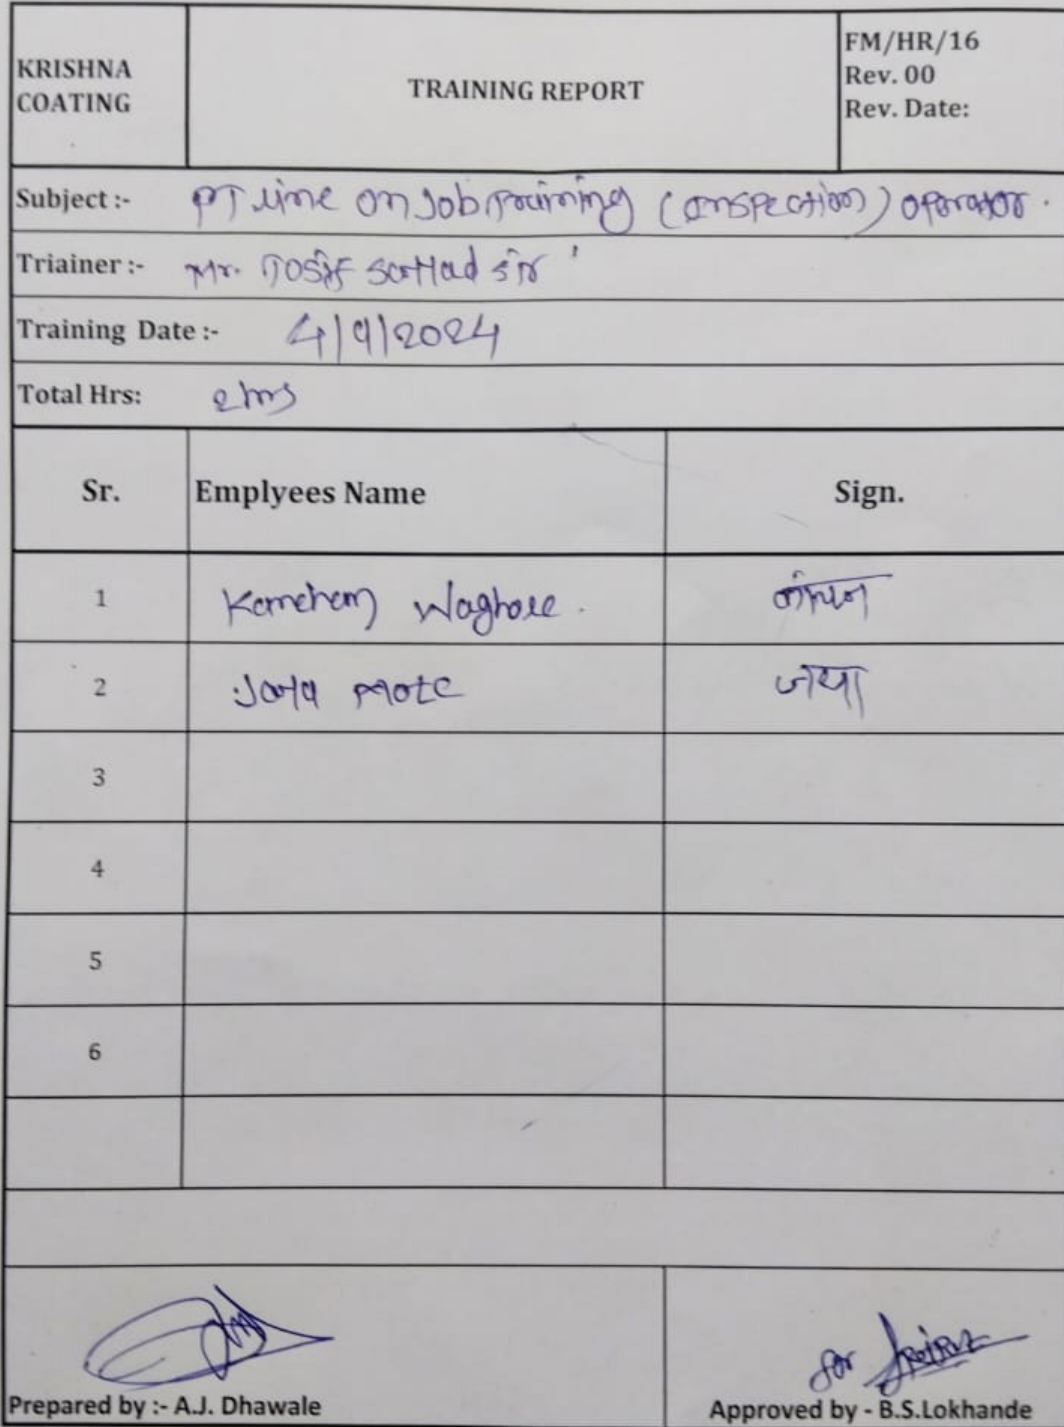 KRISHNA COATING
TRAINING REPORT
FM/HR/16
Rev. 00
Rev. Date:
Subject :- PT Line on Job Training (Inspection) operator.
Triainer :- Mr. Tosif sir
Training Date :- 4/9/2024
Total Hrs: 2hrs
Sr. Emplyees Name Sign.
1 Kanchan Waghole. कंचन
2 Jaya Mote जया
3
4
5
6
for
Prepared by :- A.J. Dhawale
Approved by - B.S.Lokhande